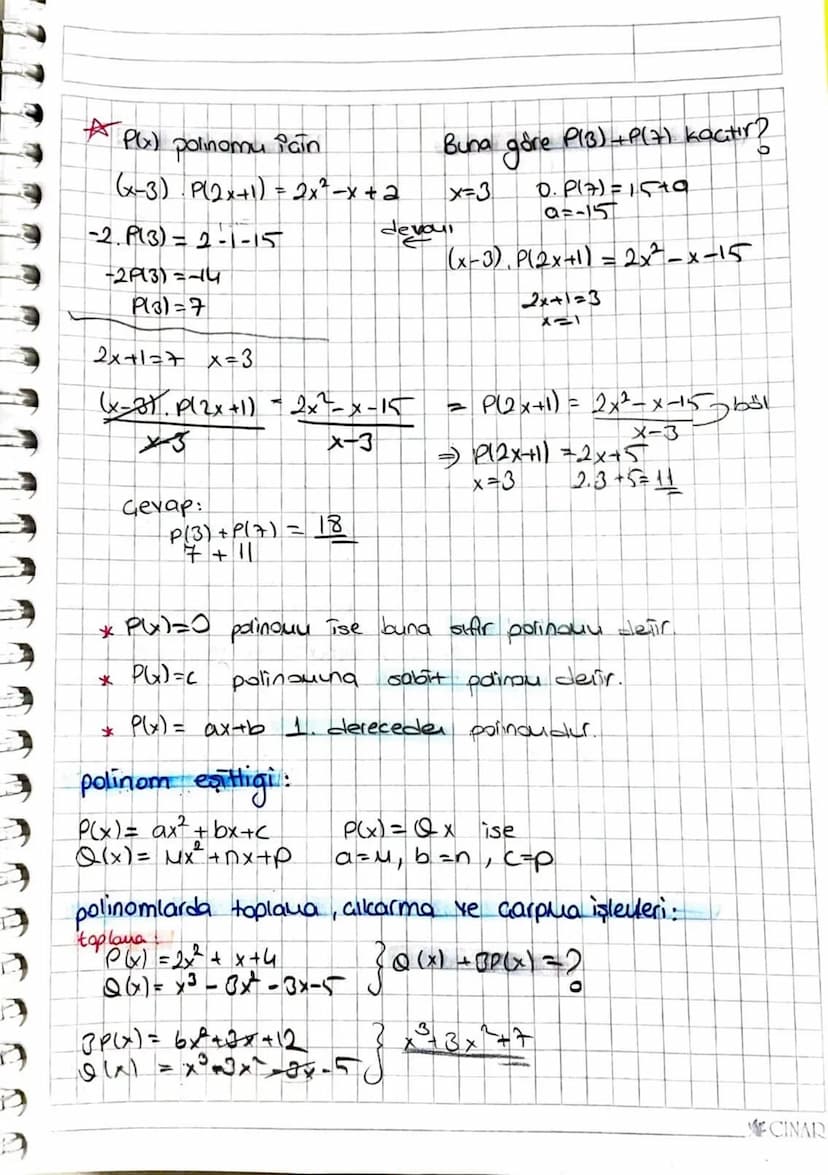 P(x) polinomu için Buna göre P(3)+P(7) kaçtır?
(x-3) . P(2x+1) = 2x²-x+a x=3 0. P(7) = 15+a
a=-15
-2. P(3) = 2-1-15 devamı
(x-3). P(2x+1) = 2x²-x-15
-2P(3) = -14
P(3) = 7
2x+1=3
x=1
2x+1=7 x=3
(x-3). P(2x+1) = 2x²-x-15 = P(2x+1) = 2x²-x-15 böl
x-3 x-3 x-3
⇒ P(2x+1) = 2x+5
x=3 2.3+5=11
Cevap:
P(3)+P(7) = 18
7 + 11
* P(x)=0 polinomu ise buna sıfır polinomu denir.
* P(x)=c polinomuna sabit polinom denir.
* P(x)= ax+b 1. dereceden polinomdur.
polinom eşitliği:
P(x)= ax²+bx+c P(x)= Qx ise
Q(x)= mx²+nx+p a=m, b=n, c=p
polinomlarda toplama, çıkarma ve çarpma işlemleri:
toplama:
P(x) = 2x² + x+4 } Q(x) + 3P(x) = ?
Q(x)= x³ - 3x² - 3x-5
3P(x)= 6x²+3x+12 } x³+3x²+7
Q(x) = x³-3x²-3x-5
ÇINAR